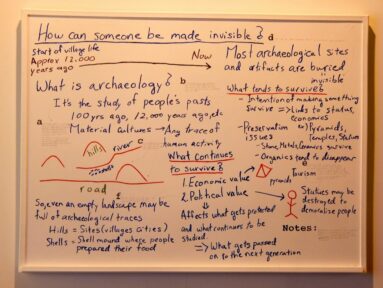 How can someone be made invisible?
d
Start of village life
Approx 12.000
years ago
Now
Most archaeological sites
and artifacts are buried
invisible
What is archaeology?
b
It's the study of people's pasts
100 yrs ago, 12.000 years ago, etc
Material cultures → Any trace of
human activity
a
hills
river
road
f
So, even an empty landscape may be
full of archaeological traces
Hills = Sites (villages cities)
Shells = Shell mound where people
prepared their food
What continues
to survive?
1. Economic value
2. Political value
Affects what gets protected
and what continues to be
studied
⇒ What gets passed
on to the next generation
What tends to survive?
- Intention of making something
survive => Links to status,
economics
- Preservation
issues
Pyramids,
Temples, Statues
- Stone, Metals, Ceramics survive
- Organics tend to disappear
e
Tourism
pyramids
Statues may be
destroyed to
demoralise people
Notes: